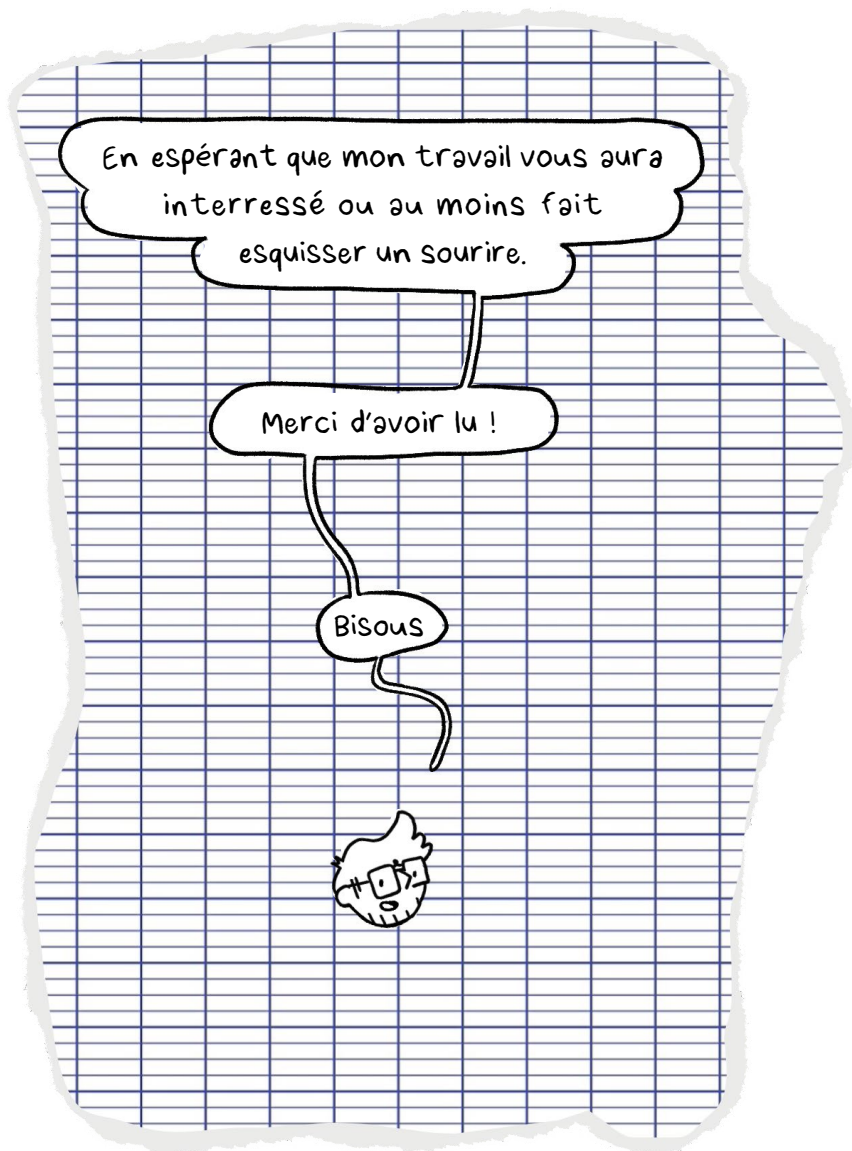 En espérant que mon travail vous aura
interressé ou au moins fait
esquisser un sourire.
Merci d'avoir lu !
Bisous